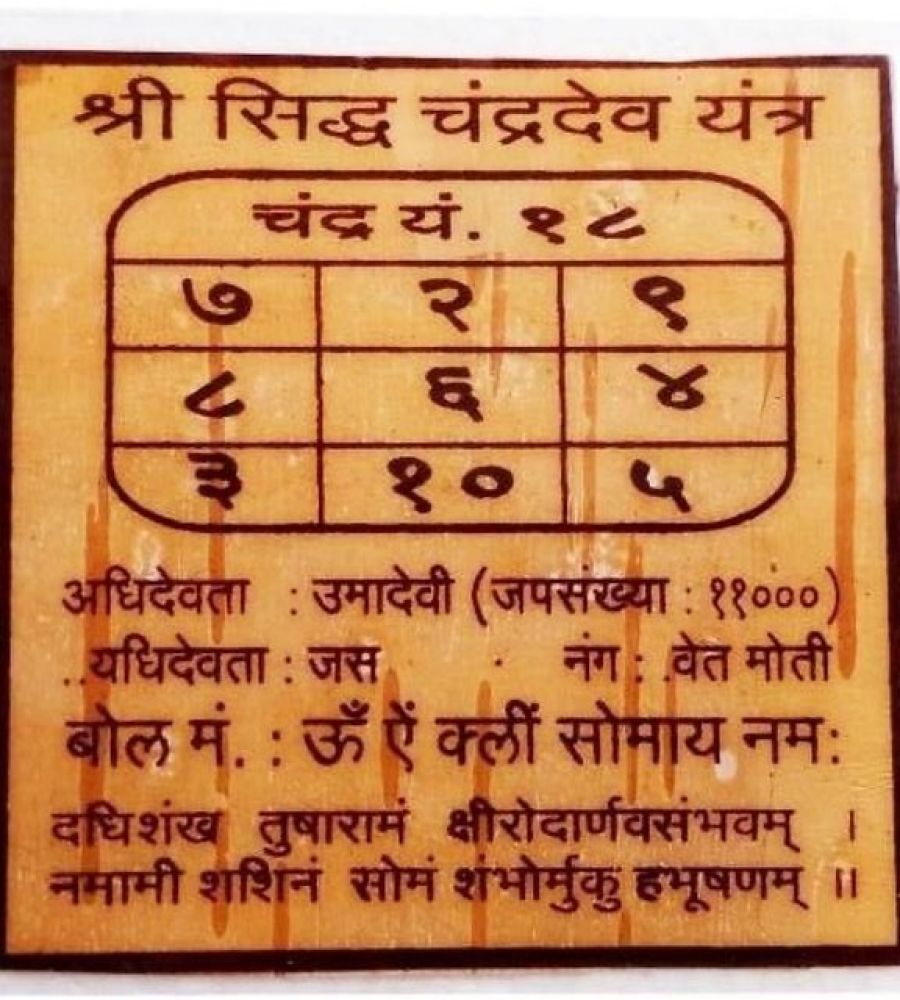 श्री सिद्ध चंद्रदेव यंत्र
चंद्र यं. १८
७ २ ९
८ ६ ४
३ १० ५
अधिदेवता : उमादेवी (जपसंख्या : ११०००)
..यधिदेवता : जस नंग : .वेत मोती
बोल मं. : ऊँ ऐं क्लीं सोमाय नम:
दधिशंख तुषारामं क्षीरोदार्णवसंभवम् ।
नमामी शशिनं सोमं शंभोर्मुकु हभूषणम् ॥